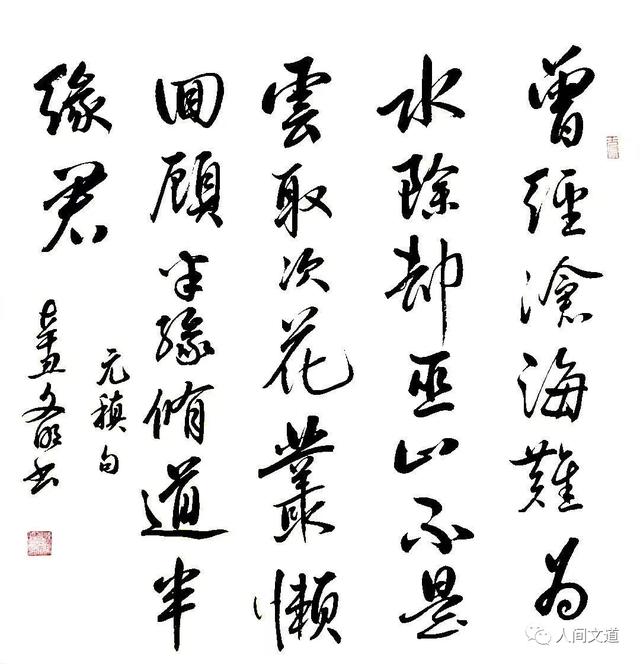 曾經滄海難為
水除卻巫山不是
雲取次花叢懶
回顧半緣脩道半
緣君
元稹句
辛丑文書
人间文道